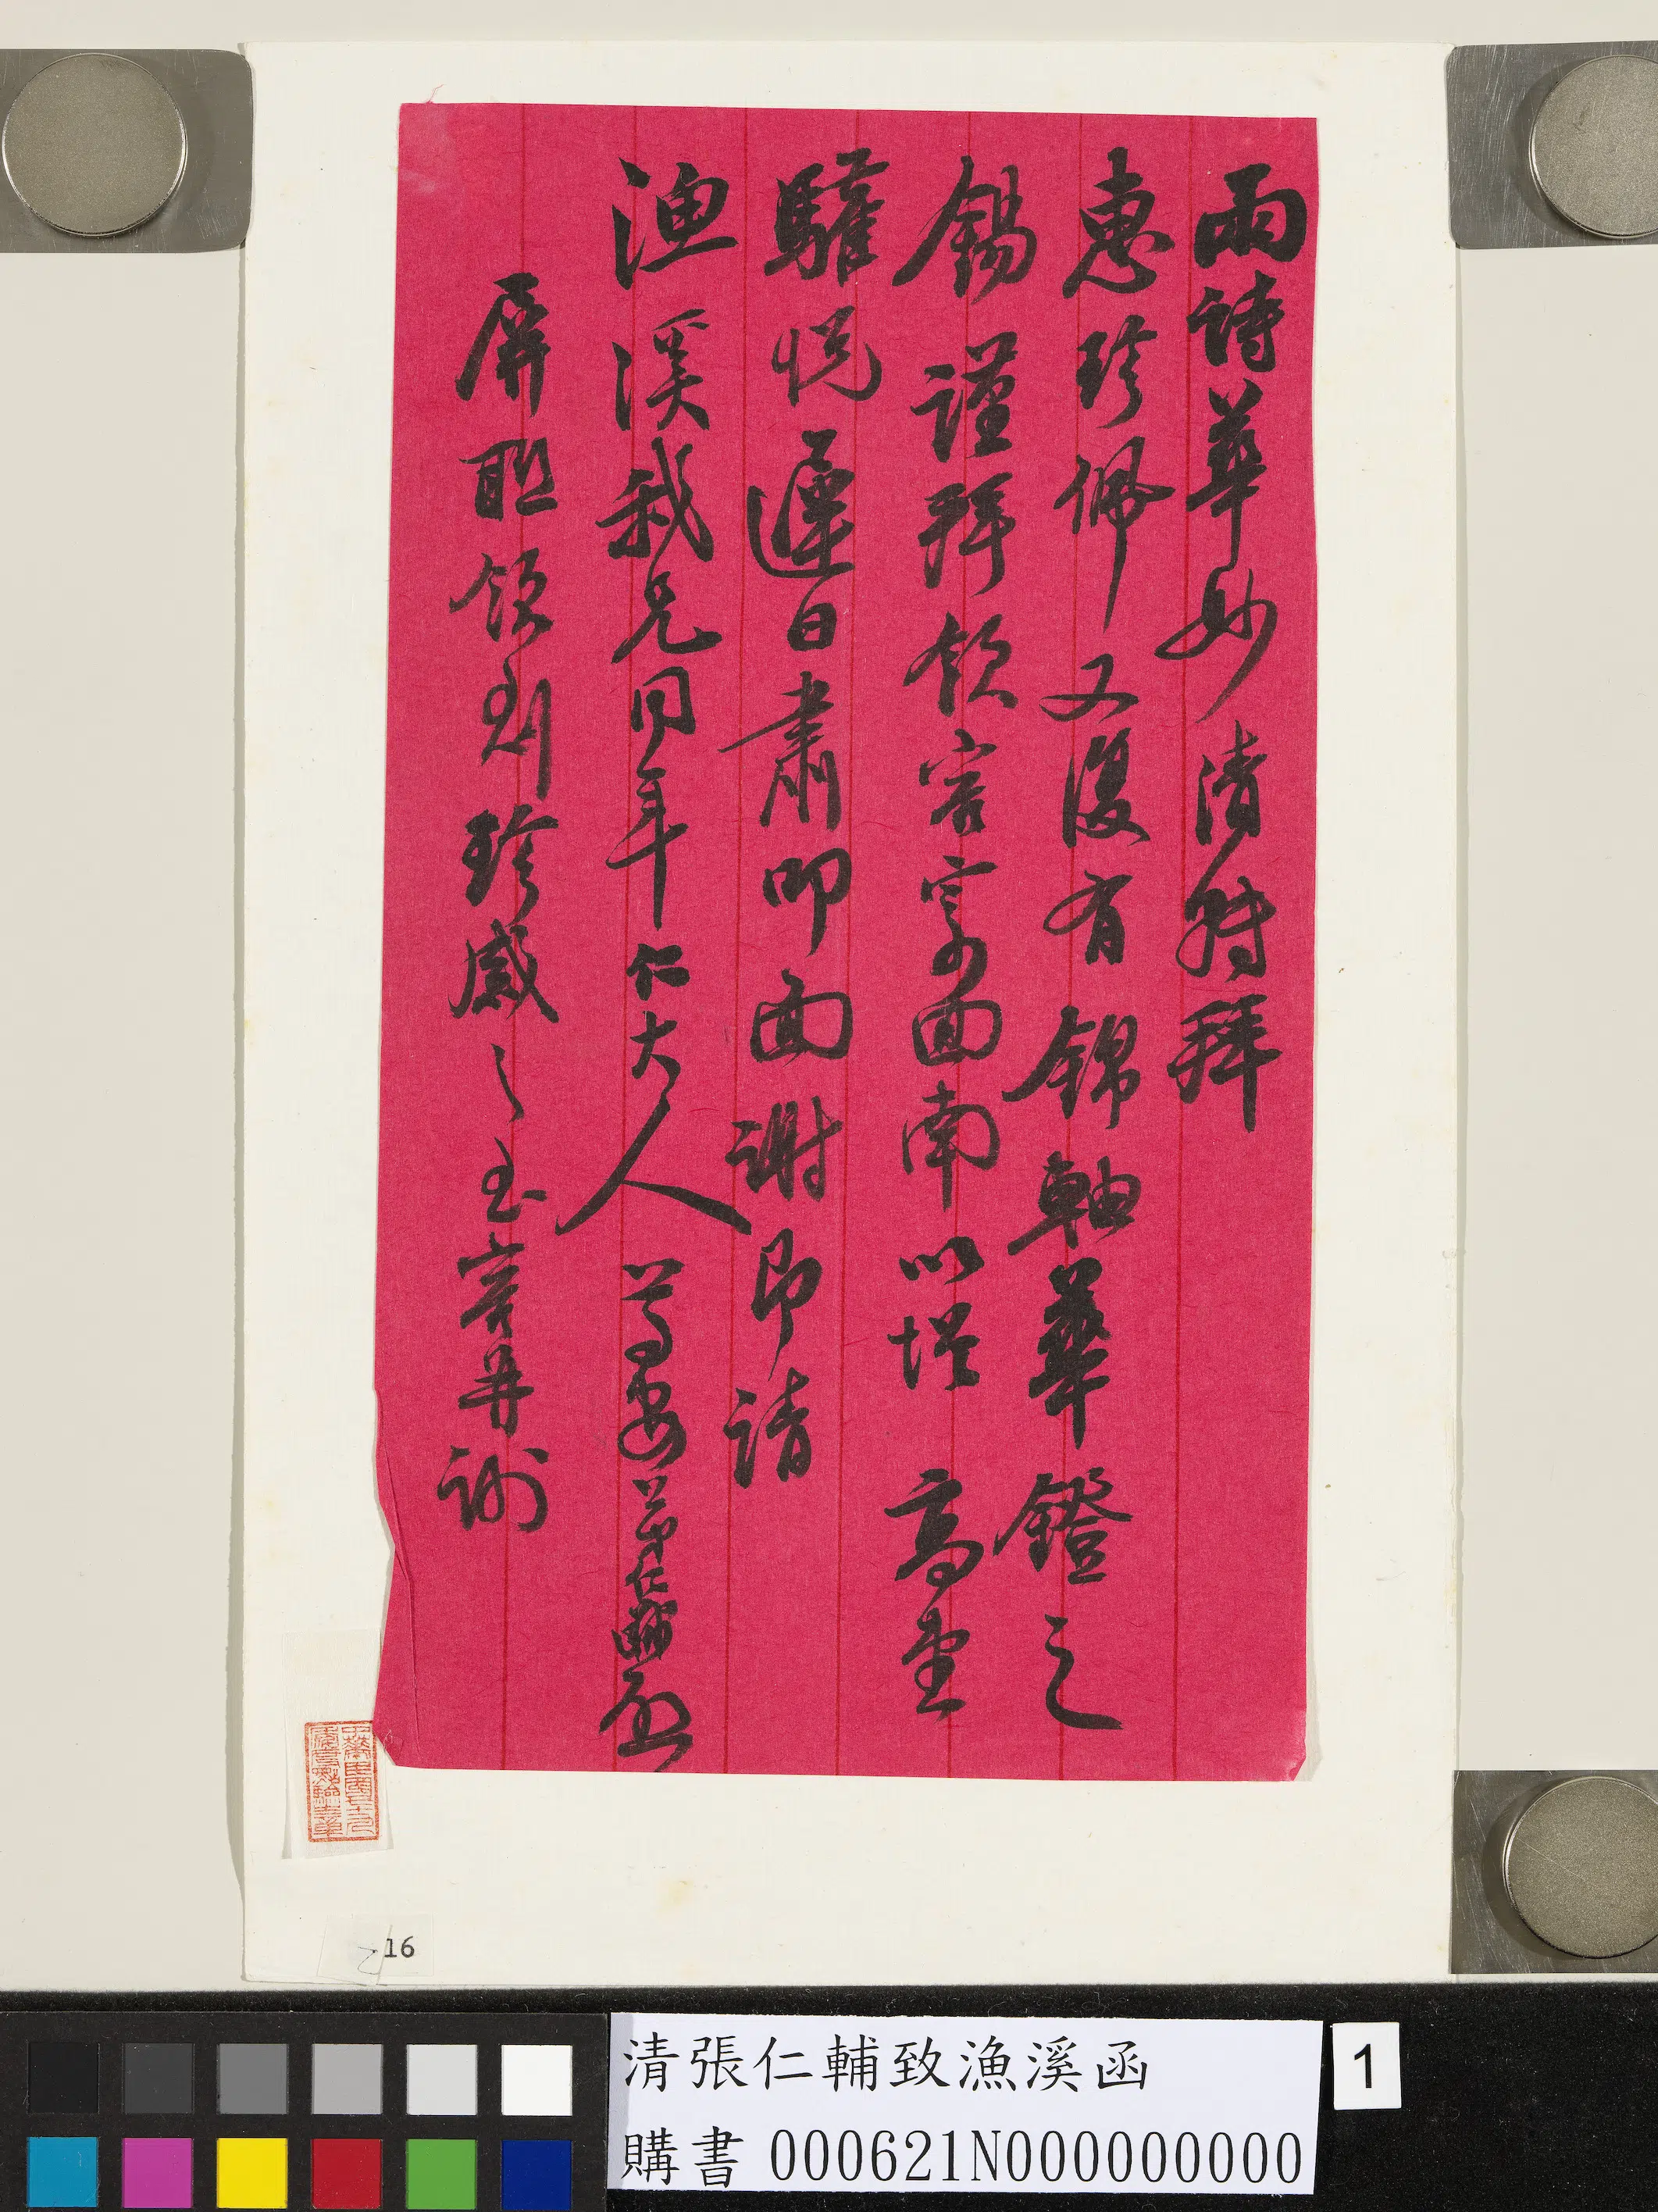 雨詩華妙清特拜
惠珍佩又復有錦軸華鐙之
錫謹拜領容寄回南以增高堂
驩悅遲日肅叩面謝即請
漁溪我兄同年仁大人 尊安 弟仁輔啟
屏聯領到珍感之至容并謝
16
清張仁輔致漁溪函
購書 000621N000000000
1